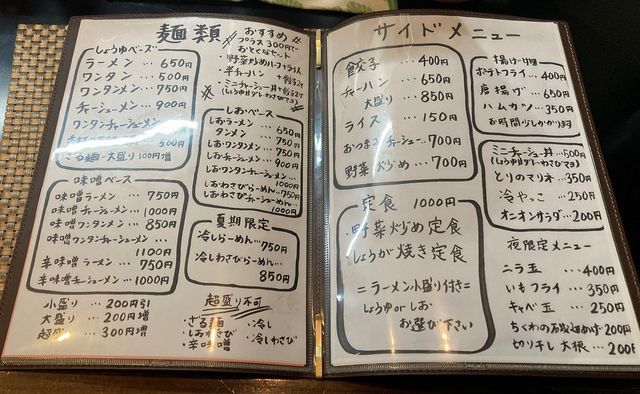 麺類
おすすめ
プラス300円で
おとくなセット
野菜炒めハーフライス
半チャーハン
しょうゆベース
ラーメン … 650円
ワンタン … 500円
ワンタンメン … 750円
チャーシューメン … 900円
ワンタンチャーシューメン
ざる麺・大盛り100円増
味噌ベース
味噌ラーメン … 750円
味噌チャーシューメン … 1000円
味噌ワンタンメン … 850円
味噌ワンタンチャーシューメン …
1100円
辛味噌ラーメン … 750円
辛味噌チャーシューメン … 1000円
小盛り … 200円引
大盛り … 200円増
超盛 … 300円増
しおベース
しおラーメン … 650円
タンメン … 750円
しおワンタンメン … 750円
しおチャーシューメン … 900円
しおワンタンチャーシューメン …
1000円
しおわさびらーめん … 750円
しおわさびチャーシューメン …
1000円
夏期限定
冷しらーめん … 750円
冷しわさびらーめん …
850円
超盛り不可
・ざる麺 ・冷し
・しおわさび ・冷しわさび
・辛味噌
サイドメニュー
餃子 … 400円
チャーハン … 650円
大盛り 850円
ライス … 150円
おつまみチャーシュー … 700円
野菜炒め … 700円
定食 1000円
・野菜炒め定食
・しょうが焼き定食
=ラーメン小盛り付き=
しょうゆorしお
お選び下さい
揚げ物
ポテトフライ … 400円
唐揚げ … 650円
ハムカツ … 350円
お時間少しかかります
ミニチャーシュー丼 … 500円
(しょうゆダレ・しおわさびマヨ)
とりのマリネ … 350円
冷やっこ … 250円
オニオンサラダ … 200円
夜限定メニュー
ニラ玉 … 400円
いもフライ … 350円
キャベ玉 … 250円
ちくわの石垣揚げ 200円
切り干し大根 … 200円